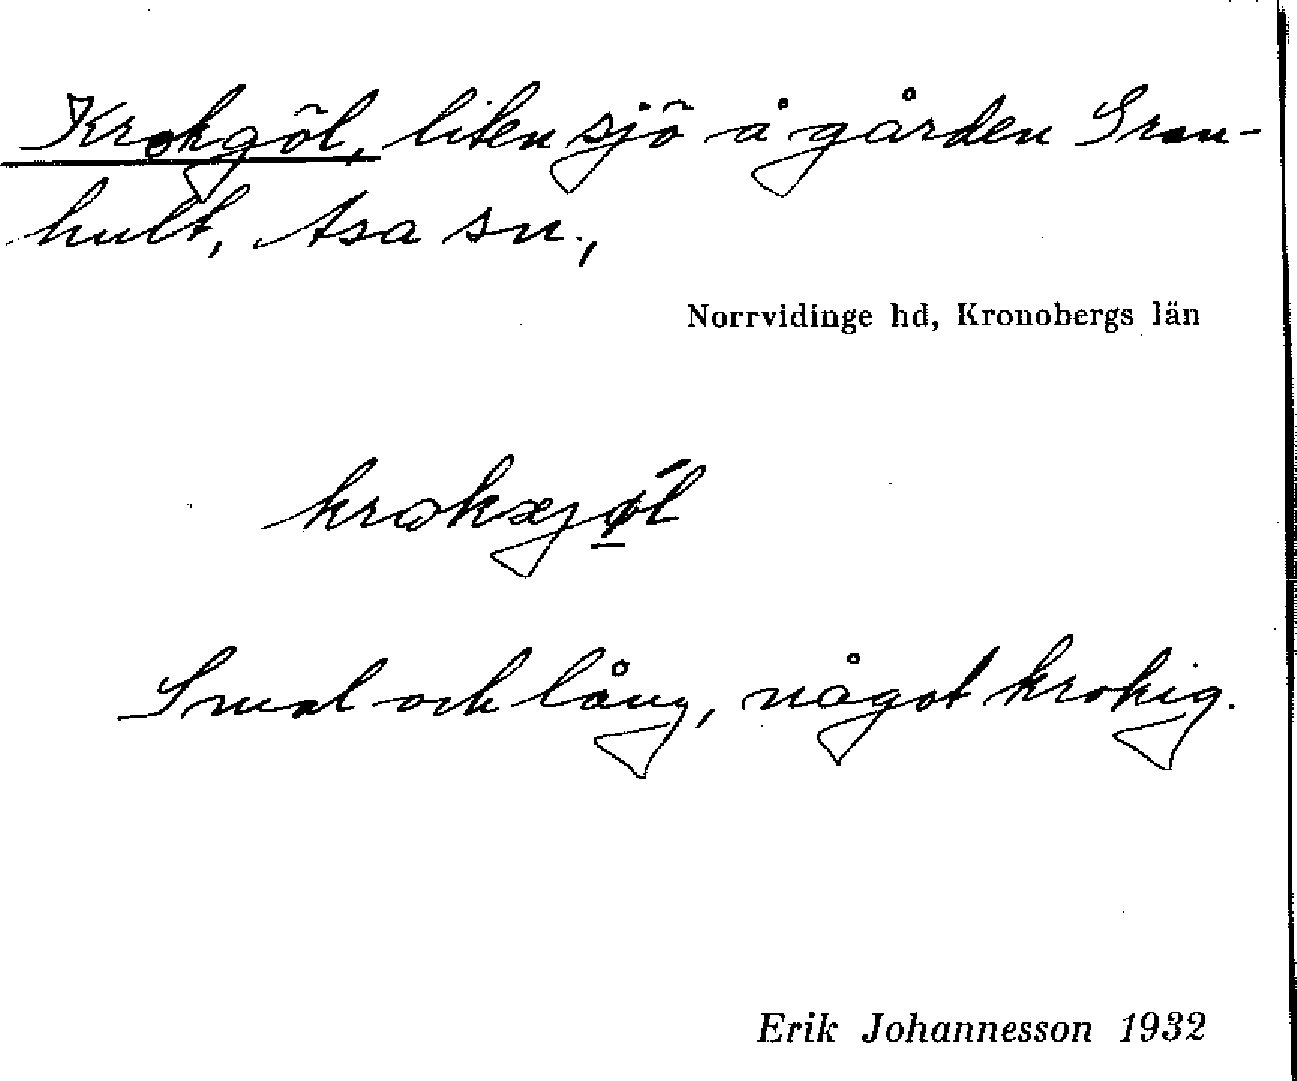 Krokgöl, liten sjö å gården Gran-
hult, Asa sn.,
Norrvidinge hd, Kronobergs län
Smal och lång, något krokig.
Erik Johannesson 1932